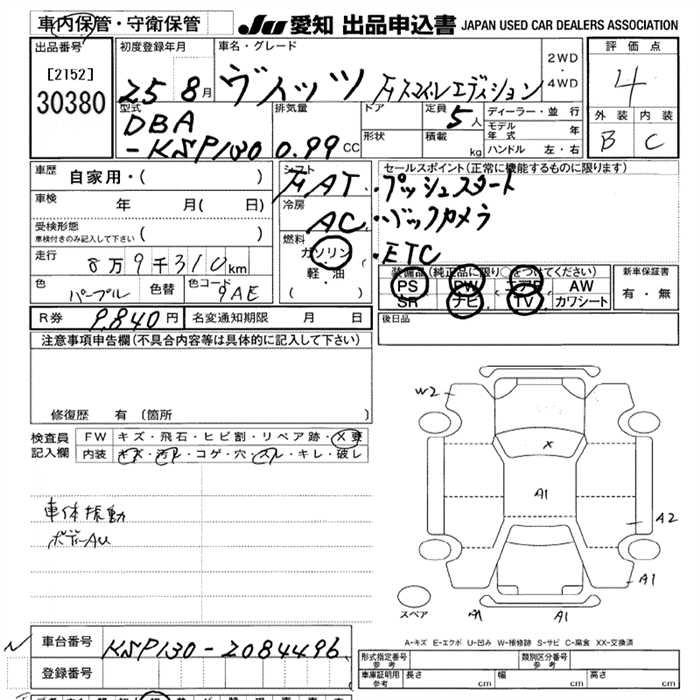 車内保管・守衛保管
JU 愛知 出品申込書 JAPAN USED CAR DEALERS ASSOCIATION
出品番号
[2152]
30380
初度登録年月
25 8月
車名・グレード
ヴィッツ
2WD
・
4WD
評価点
4
外装 内装
B C
型式
DBA
-KSP130
排気量
0.99 CC
ドア
形状
定員
5人
積載
kg
ディーラー・並行
モデル年式 年
ハンドル 左・右
車歴
自家用・( )
車検
年 月( 日)
受検形態
車検付きのみ記入して下さい ( )
走行
8万9千310km
色
パープル
色替
色コード
9AE
シフト
FAT
冷房
AC
燃料
ガソリン
軽・油
( )
セールスポイント(正常に機能するものに限ります)
・プッシュスタート
・バックカメラ
・ETC
装備品(純正品に限り○をつけてください)
PS PW エアB AW
SR ナビ TV カワシート
新車保証書
有・無
後日品
R券 9,840円 名変通知期限 月 日
注意事項申告欄(不具合内容等は具体的に記入して下さい)
修復歴 有(箇所 )
検査員
記入欄
FW キズ・飛石・ヒビ割・リペア跡・X要
内装 キズ・汚れ・コゲ・穴・スレ・キレ・破レ
車体振動
ボデーAU
W2
X
A1
A2
A1
A1
A1
スペア
A-キズ E-エクボ U-凹み W-補修跡 S-サビ C-腐食 XX-交換済
車台番号
KSP130-2084496
登録番号
形式指定番号
参考
類別区分番号
参考
車庫証明用
参考
長さ cm 幅 cm 高さ cm